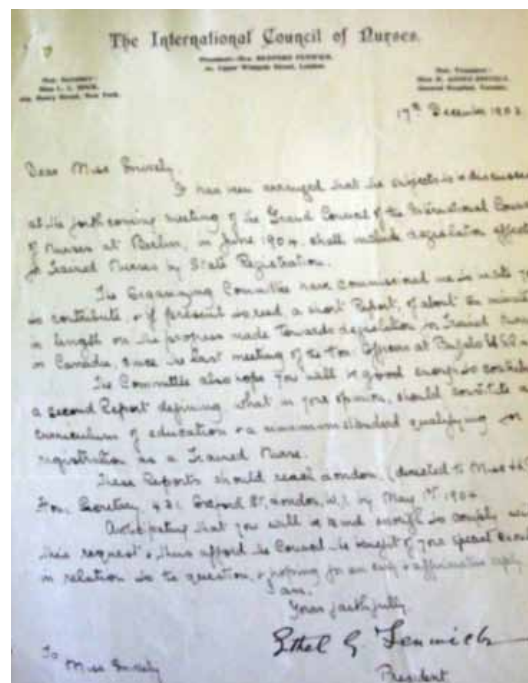 The International Council of Nurses.
President—Mrs. BEDFORD FENWICK,
20, Upper Wimpole Street, London.
Hon. Secretary:
Miss L. L. DOCK,
Henry Street, New York.
Hon. Treasurer:
General Hospital, Toronto.
17th December 1903
Dear Miss Snively,
It has been arranged that the subjects to be discussed
at the forthcoming meeting of the Grand Council of the International
of Nurses at Berlin, in June 1904, shall include legislation
Trained Nurses by State Registration.
The Organizing Committee have commissioned me to invite
to contribute, & if present to read, a short Report, of about ten
in length on the progress made towards legislation for Trained
in Canada, since the last meeting of the Hon. Officers at Buffalo
The Committee also hope you will be good enough to
a second Report defining what in your opinion, should constitute
curriculum of education & a minimum standard qualifying for
registration as a Trained Nurse.
These Reports should reach London, (directed to Miss
Hon. Secretary, 431 Oxford St, London, W.) by May 1st 1904.
Anticipating that you will be kind enough to comply
this request & thus afford the Council the benefit of your special
in relation to the question, & hoping for an early & affirmative reply
I am,
Yours faithfully
Ethel G Fenwick
President
To
Miss Snively